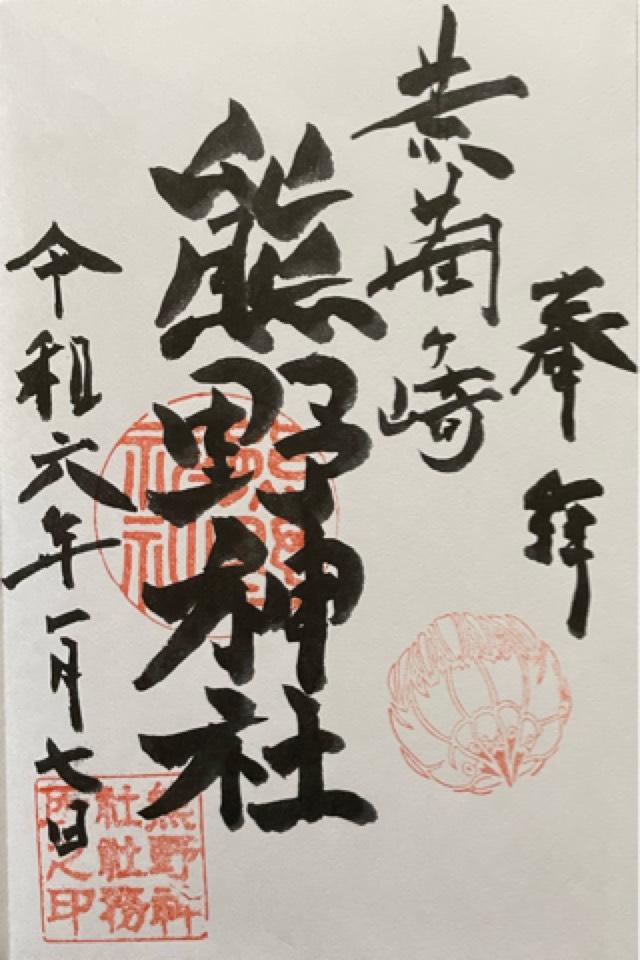 奉拝
ヶ崎
熊野神社
令和六年一月七日
熊野
神社
熊野神
社社務
所之印